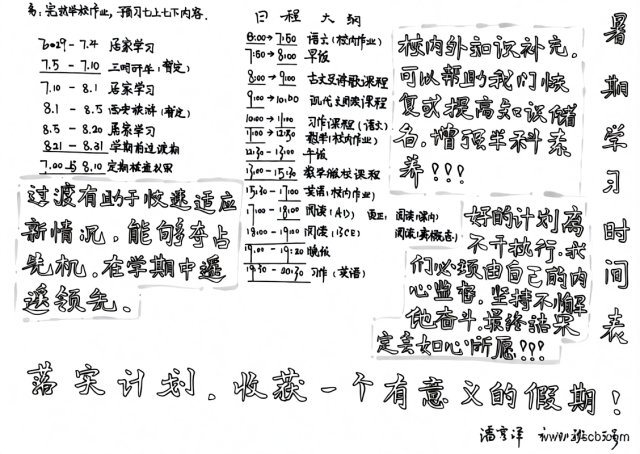 务:完成学校作业,预习七上七下内容.
6.29-7.4 居家学习
7.5 - 7.10 三明研学(暂定)
7.10 - 8.1 居家学习
8.1 - 8.5 西安旅游(暂定)
8.5 - 8.20 居家学习
8.21 - 8.31 学期前过渡期
定期检查效果
过渡有助于快速适应
新情况,能够夺占
先机,在学期中遥
遥领先.
日程大纲
8:00→7:50 语文(校内作业)
7:50→8:00 早饭
8:00→9:00 古文及诗歌课程
9:00→10:00 现代文阅读课程
10:00→11:00 习作课程(语文)
11:00→12:30 数学(校内作业)
12:30-13:00 午饭
13:00-15:30 数学服校课程
15:30-17:00 英语(校内作业)
17:00-18:00 阅读(A1) 阅读(课内)
18:00-19:00 阅读(BCE)
19:00-19:20 晚饭
19:30-20:30 习作(英语)
校内外知识补充,
可以帮助我们恢
复或提高知识储
备,增强学科素
养!!!
好的计划离
不开执行,我
们必须由自己的内
心监督,坚持不懈
地奋斗,最终结果
定会如心所愿!!!
暑期学习时间表
落实计划,收获一个有意义的假期!